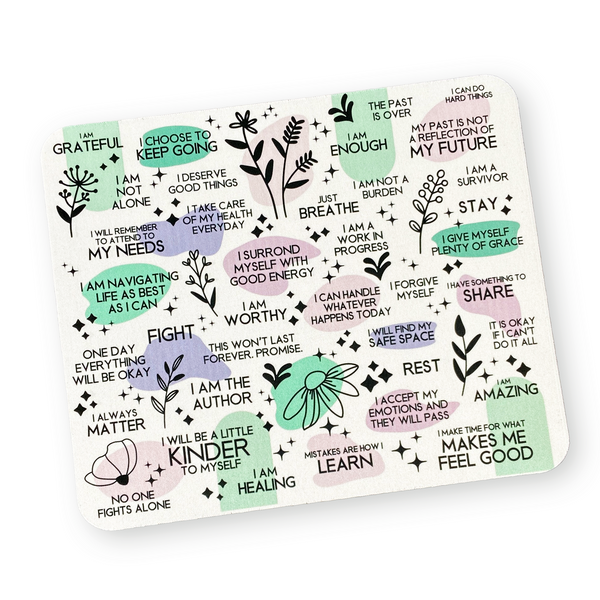 I AM
GRATEFUL
I CHOOSE TO
KEEP GOING
I AM
ENOUGH
THE PAST
IS OVER
I CAN DO
HARD THINGS
MY PAST IS NOT
A REFLECTION OF
MY FUTURE
I AM
NOT
ALONE
I DESERVE
GOOD THINGS
JUST
BREATHE
I AM NOT A
BURDEN
I AM A
SURVIVOR
STAY
I WILL REMEMBER
TO ATTEND TO
MY NEEDS
I TAKE CARE
OF MY HEALTH
EVERYDAY
I SURROND
MYSELF WITH
GOOD ENERGY
I AM A
WORK IN
PROGRESS
I GIVE MYSELF
PLENTY OF GRACE
I AM NAVIGATING
LIFE AS BEST
AS I CAN
I AM
WORTHY
I CAN HANDLE
WHATEVER
HAPPENS TODAY
I FORGIVE
MYSELF
I HAVE SOMETHING TO
SHARE
FIGHT
ONE DAY
EVERYTHING
WILL BE OKAY
THIS WON'T LAST
FOREVER. PROMISE.
I WILL FIND MY
SAFE SPACE
IT IS OKAY
IF I CAN'T
DO IT ALL
REST
I AM THE
AUTHOR
I AM
AMAZING
I ALWAYS
MATTER
I ACCEPT MY
EMOTIONS AND
THEY WILL PASS
I WILL BE A LITTLE
KINDER
TO MYSELF
MISTAKES ARE HOW I
LEARN
I MAKE TIME FOR WHAT
MAKES ME
FEEL GOOD
I AM
HEALING
NO ONE
FIGHTS ALONE